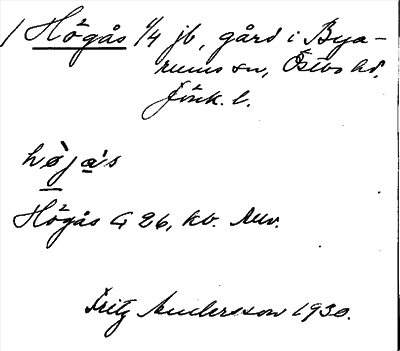 / Högås 1/4 jb, gård i Bya-
rums sn, Östbo hd.
Jönk. l.
hø̀ja̍s
Högås G 26, kv. Nuv.
Fritz Andersson 1930.